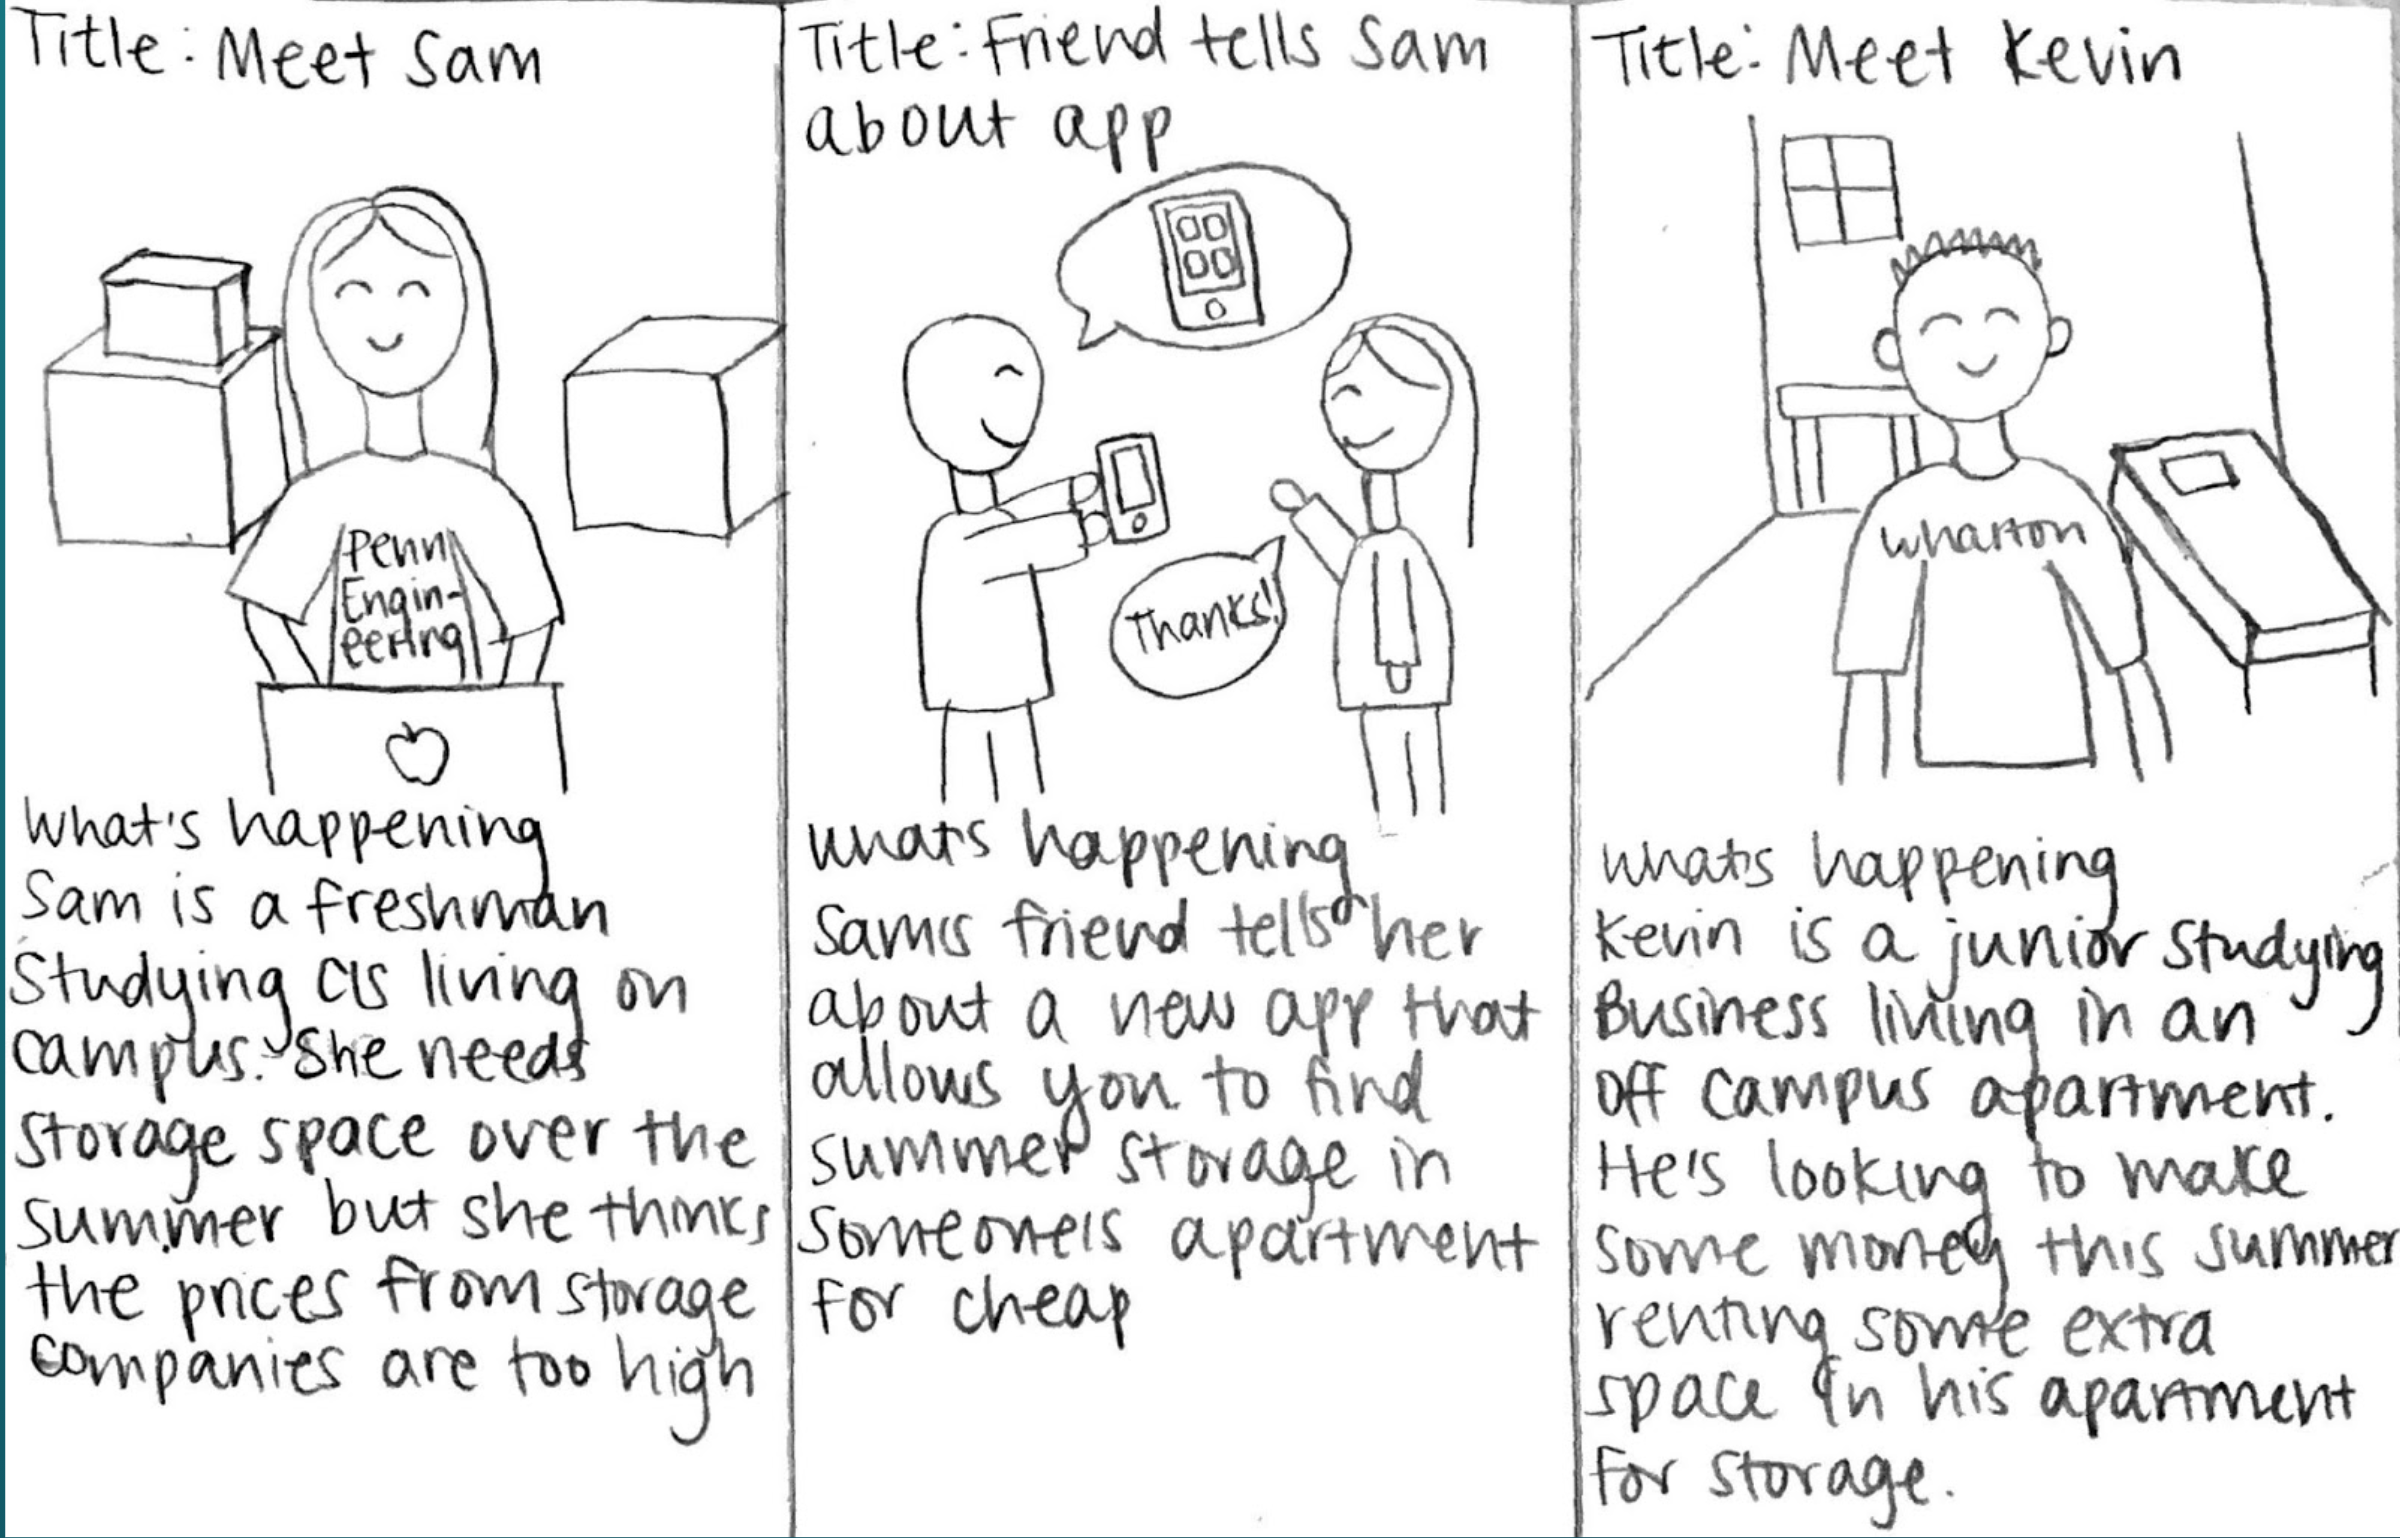 Title: Meet Sam
Penn
Engin-
eering
What's happening
Sam is a freshman
Studying CIS living on
campus. She needs
storage space over the
summer but she thinks
the prices from storage
companies are too high
Title: Friend tells Sam
about app
Thanks!
what's happening
Sam's friend tells her
about a new app that
allows you to find
summer storage in
someone's apartment
for cheap
Title: Meet Kevin
Wharton
what's happening
Kevin is a junior studying
Business living in an
off campus apartment.
He's looking to make
some money this summer
renting some extra
space in his apartment
for storage.